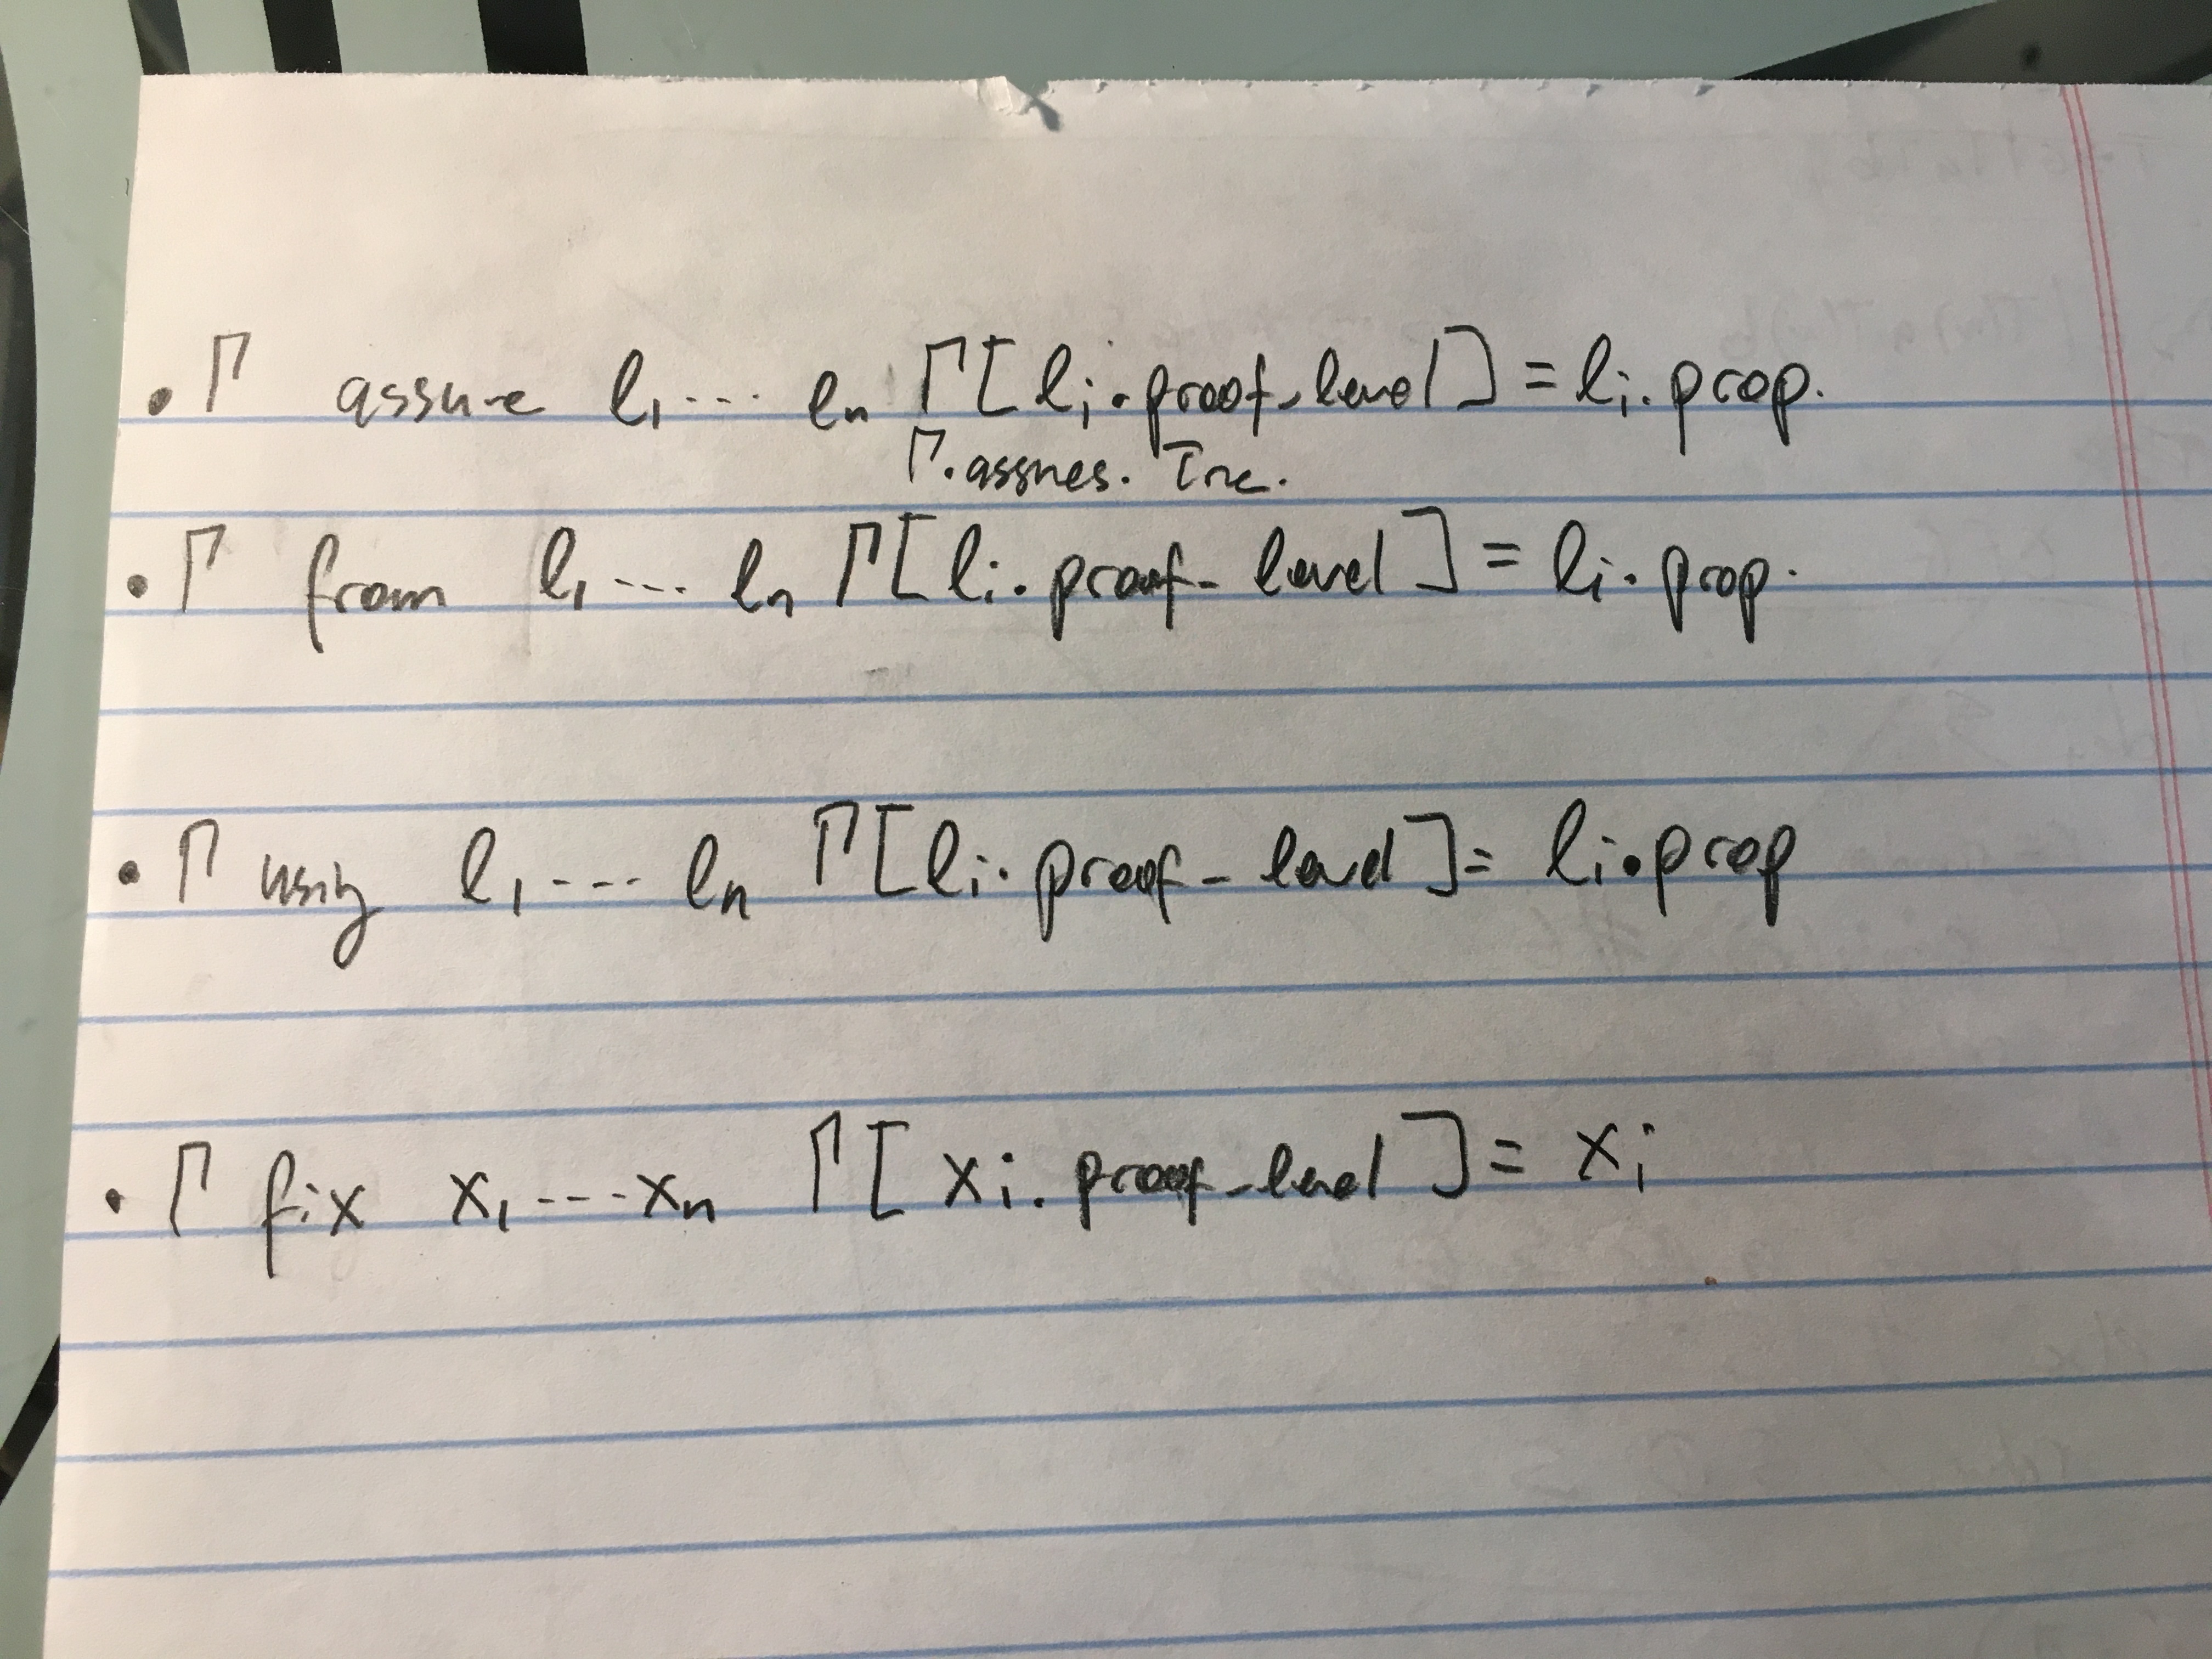 • Γ assume l₁ ... lₙ Γ[lᵢ.proof_level] = lᵢ.prop.
Γ.assumes. Inc.
• Γ from l₁ --- lₙ Γ[lᵢ.proof_level] = lᵢ.prop.
• Γ using l₁ --- lₙ Γ[lᵢ.proof_level] = lᵢ.prop
• Γ fix x₁ --- xₙ Γ[xᵢ.proof_level] = xᵢ